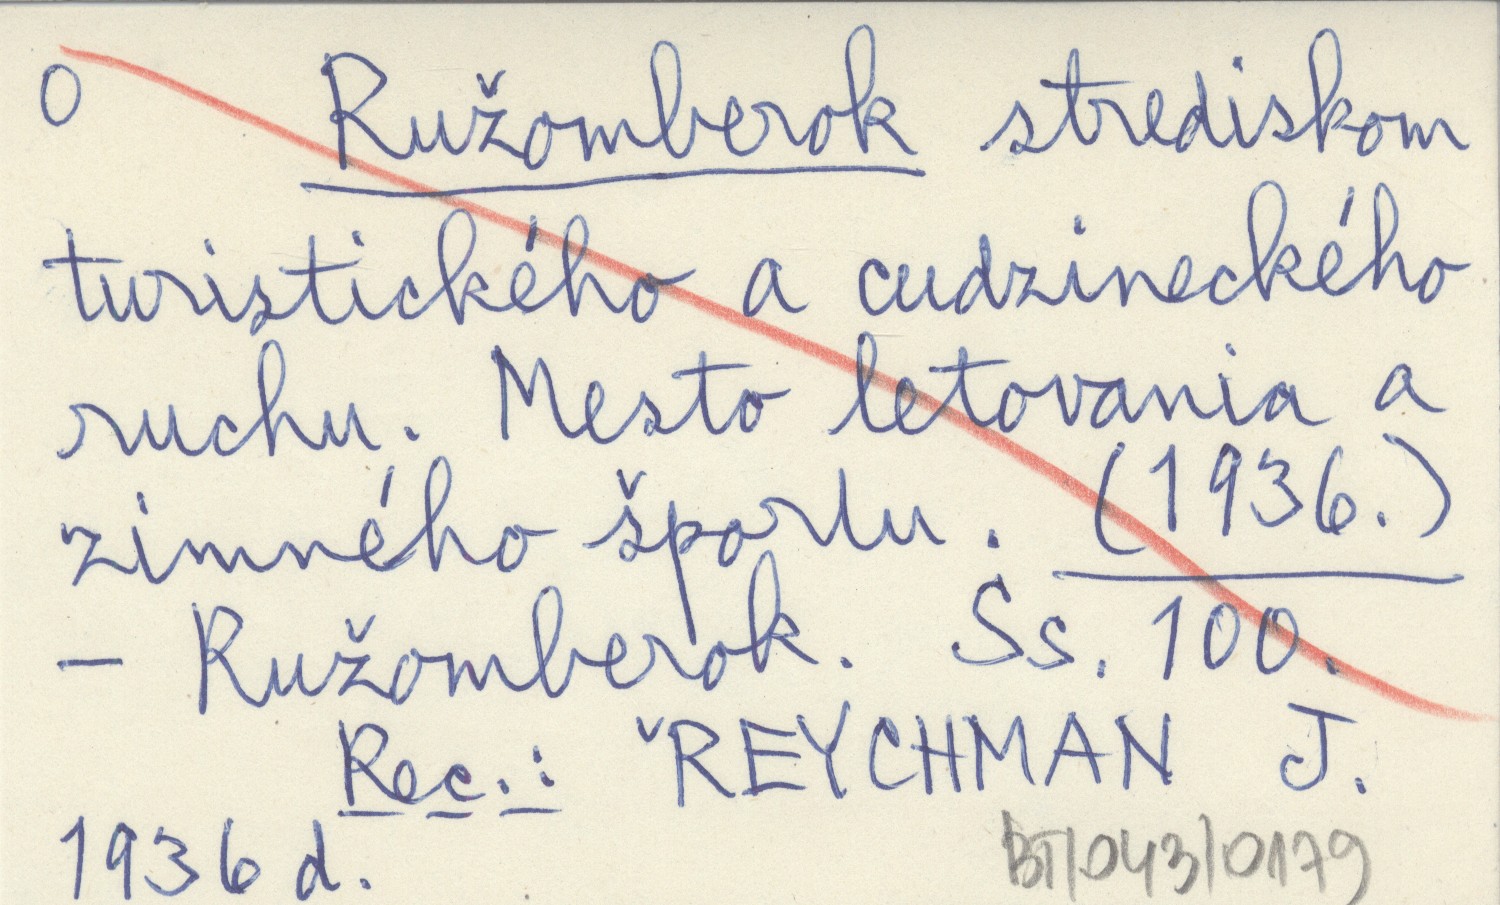 O Ružomberok strediskom
turistického a cudzineckého
ruchu. Mesto letovania a
zimného športu. (1936.)
- Ružomberok. Ss. 100.
Rec.: ˇREYCHMAN J.
1936 d.
BT/043/0179